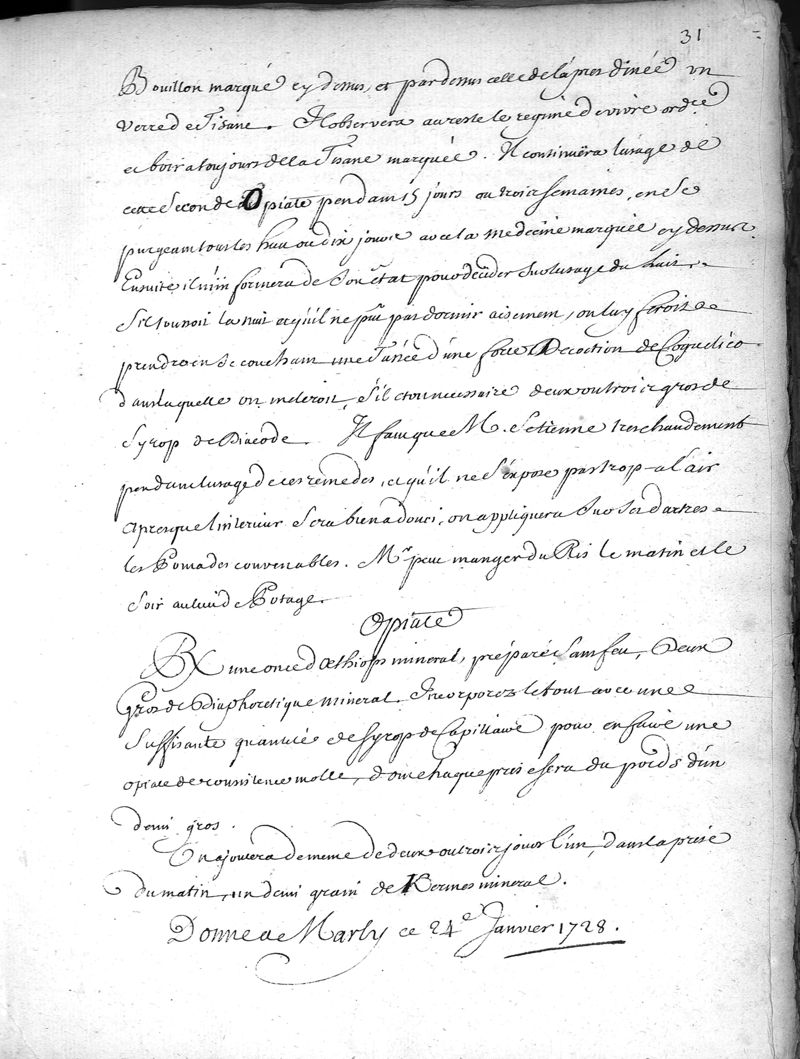 31
Bouillon marqué cy dessus, et pardessus celle de l'apres dinée un
verre de Tisane. Il observera au reste le regime de vivre ord.re
et boira toujours de la Tisane marquée. Il continuëra l'usage de
cette seconde Opiate pendant 15 jours ou trois semaines, en se
purgeant tous les huit ou dix jours avec la medecine marquée cy dessus.
Ensuite il m'informera de son état pour décider sur l'usage du lait.
S'il toussoit la nuit et qu'il ne pût pas dormir aisement, on luy feroit
prendre en se couchant une Tasse d'une forte Decoction de Coquelico
dans laquelle on meleroit, s'il etoit necessaire deux ou trois gros de
Syrop de Diacode. Il faut que M. se tienne tres chaudement
pendant l'usage de ces remedes, et qu'il ne s'expose pas trop a l'air
apres que l'interieur sera bien adouci, on appliquera sur ses dartres
les Pomades convenables. Mr peut manger du Ris le matin et le
soir au lieu de Potage.
Opiate
Rx une once d'æthiops mineral, préparé sans feu, Deux
Gros de Diaphoretique mineral. Incorporez le tout avec une
suffisante quantité de Syrop de Capillaire pour en faire une
opiate de consistence molle, dont chaque prise sera du poids d'un
demi gros.
On ajoutera de meme de deux ou trois jours l'un, dans la prise
du matin, un demi grain de Kermes mineral.
Donné a Marly ce 24e Janvier 1728.